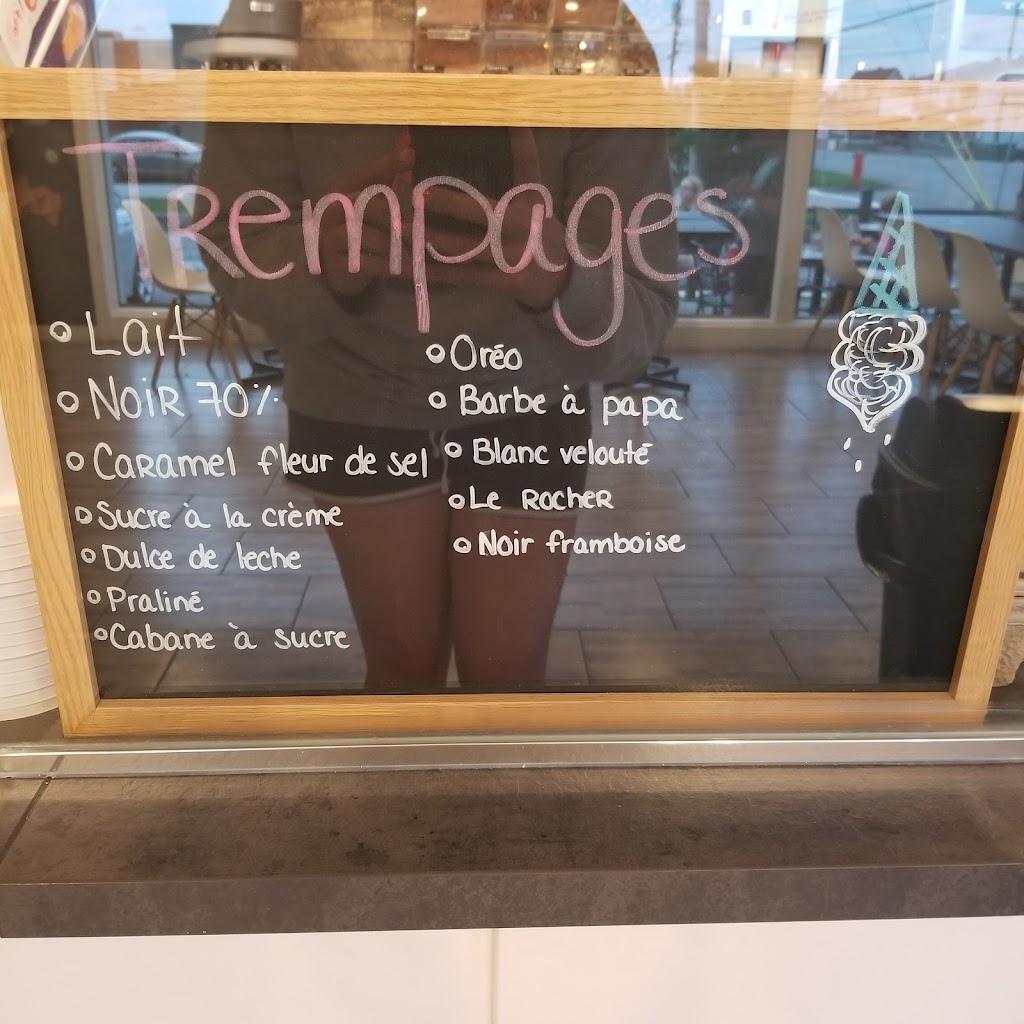 Trempages
Lait
Noir 70%
Caramel fleur de sel
Sucre à la crème
Dulce de leche
Praliné
Cabane à sucre
Oréo
Barbe à papa
Blanc velouté
Le Rocher
Noir framboise